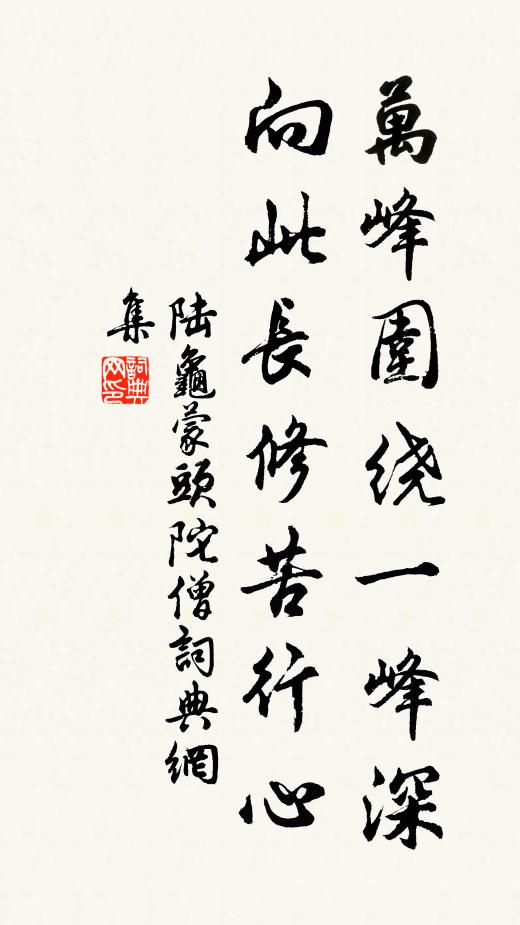 萬峰圍繞一峰深
向此長修苦行心
陸龜蒙頭陀僧詞典網
集
詞典网印